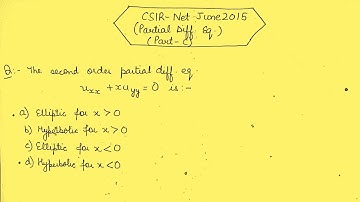 CSIR-Net June 2015
(Partial Diff. Eq.)
(Part-C)
Q:- The second order partial diff. eq.
u_xx + x u_yy = 0 is :-
a) Elliptic for x > 0
b) Hyperbolic for x > 0
c) Elliptic for x < 0
d) Hyperbolic for x < 0